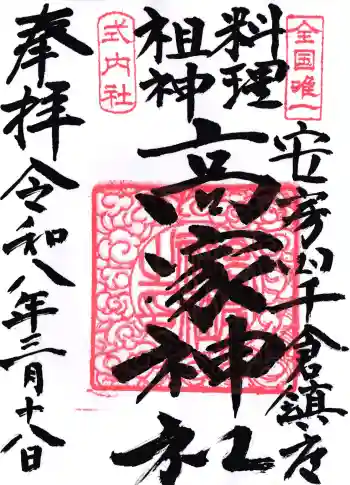 全国唯一
安房国千倉鎮座
料理
祖神
高家神社
式内社
奉拝
令和八年三月十八日